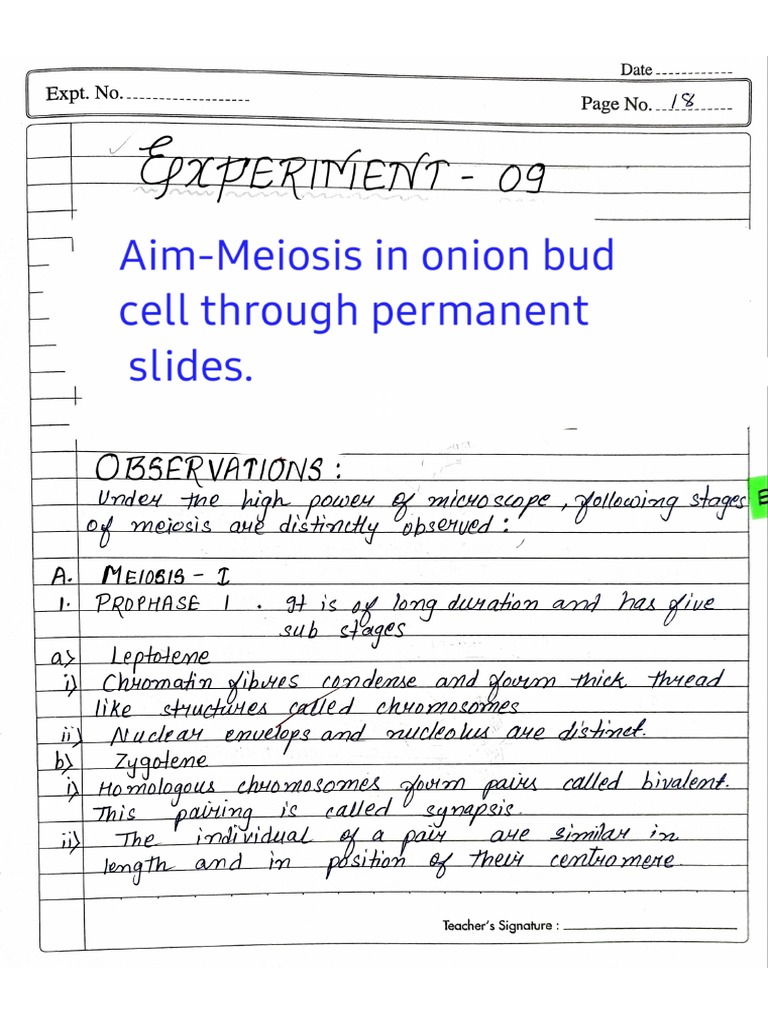 Date
Expt. No.
Page No. 18
EXPERIMENT - 09
Aim-Meiosis in onion bud
cell through permanent
slides.
OBSERVATIONS :
Under the high power of microscope, following stages
of meiosis are distinctly observed :
A. MEIOSIS - I
1. PROPHASE 1 . It is of long duration and has five
sub stages
a) Leptotene
i) Chromatin fibres condense and form thick thread
like structures called chromosomes
ii) Nuclear envelops and nucleolus are distinct.
b) Zygotene
i) Homologous chromosomes form pairs called bivalent.
This pairing is called synapsis.
ii) The individual of a pair are similar in
length and in position of their centromere
Teacher's Signature :